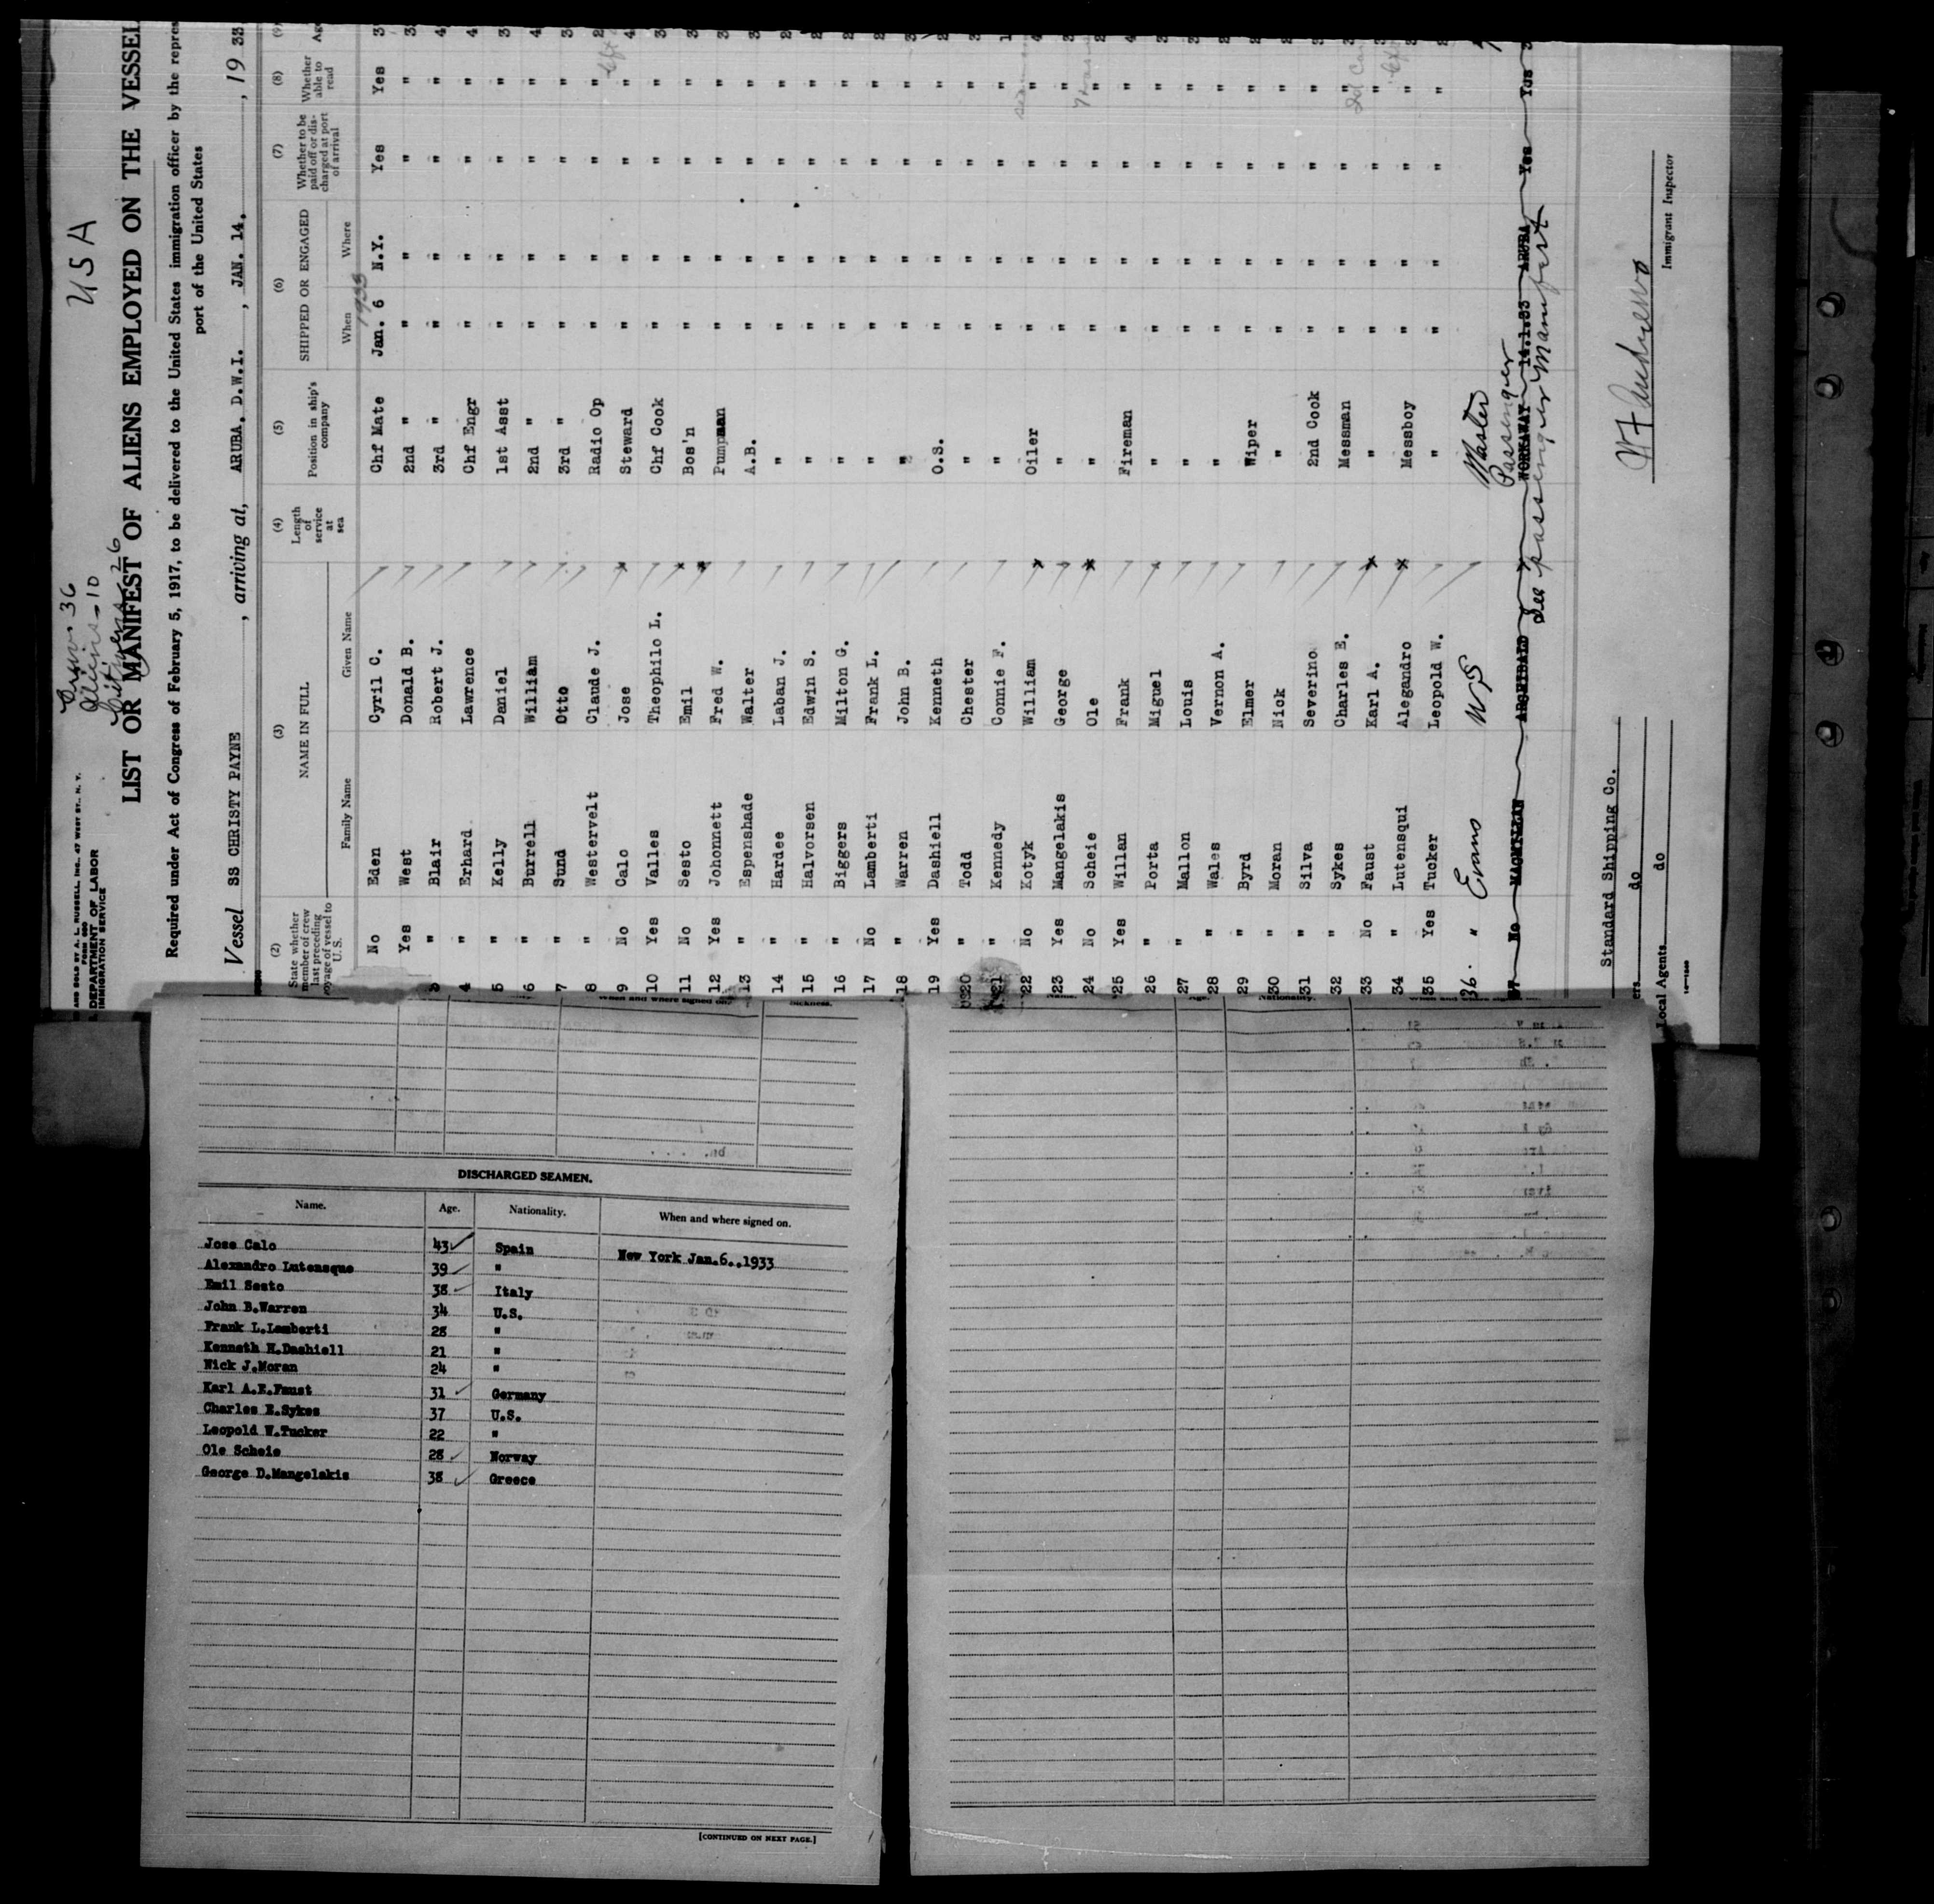 USA
Crew 36
Aliens 10
Citizens 26
AND SOLD BY A. L. RUSSELL, INC., 47 WEST ST., N. Y.
DEPARTMENT OF LABOR
IMMIGRATION SERVICE
LIST OR MANIFEST OF ALIENS EMPLOYED ON THE VESSEL
Required under Act of Congress of February 5, 1917, to be delivered to the United States immigration officer by the repres
port of the United States
Vessel SS CHRISTY PAYNE , arriving at, ARUBA. D.W.I. , JAN. 14. , 19 33
(2) (3) (4) (5) (6) (7) (8) (9)
State whether member of crew last preceding voyage of vessel to U. S. NAME IN FULL Length of service at sea Position in ship's company SHIPPED OR ENGAGED Whether to be paid off or discharged at port of arrival Whether able to read Ag
Family Name Given Name When Where
1933
No Eden Cyril C. Chf Mate Jan. 6 N.Y. Yes Yes 3
Yes West Donald B. 2nd " " " " " 3
3 " Blair Robert J. 3rd " " " " " 4
4 " Erhard Lawrence Chf Engr " " " " 4
5 " Kelly Daniel 1st Asst " " " " 3
6 " Burrell William 2nd " " " " " 4
7 " Sund Otto 3rd " " " " " 3
8 " Westervelt Claude J. Radio Op " " " " 2
9 No Calo Jose Steward " " " " 4
10 Yes Valles Theophilo L. Chf Cook " " " " 3
11 No Sesto Emil Bos'n " " " " 3
12 Yes Johonnett Fred W. Pumpman " " " " 3
13 " Espenshade Walter A.B. " " " " 3
14 " Hardee Laban J. " " " " " 2
15 " Halvorsen Edwin S. " " " " " 2
16 " Biggers Milton G. " " " " " 2
17 No Lamberti Frank L. " " " " " 2
18 " Warren John B. " " " " " 3
19 Yes Dashiell Kenneth O.S. " " " " 2
20 " Todd Chester " " " " " 3
21 " Kennedy Connie F. " " " " " 1
22 No Kotyk William Oiler " " " " 4
23 Yes Mangelakis George " " " " " 3
24 No Scheie Ole " " " " " 2
25 Yes Willan Frank Fireman " " " " 4
26 " Porta Miguel " " " " " 3
27 " Mallon Louis " " " " " 3
28 " Wales Vernon A. " " " " " 2
29 " Byrd Elmer Wiper " " " " 2
30 " Moran Nick " " " " " 2
31 " Silva Severino 2nd Cook " " " " 3
32 " Sykes Charles E. Messman " " " " 3
33 No Faust Karl A. " " " " " 3
34 " Lutensqui Alegandro Messboy " " " " 3
35 Yes Tucker Leopold W. " " " " " 2
36. " Evans W S Master
Passenger
37 No MACMILLAN ARCHIBALD WORKAWAY 14.1.33 ARUBA Yes Yes 3
See passenger Manifest
Standard Shipping Co.
do
Local Agents do
Immigrant Inspector
When and where signed on. Sickness.
Name. Age. Nationality.
DISCHARGED SEAMEN.
Name. Age. Nationality. When and where signed on.
Jose Calo 43 Spain New York Jan.6..1933
Alexandro Lutensque 39 "
Emil Sesto 38 Italy
John B.Warren 34 U.S.
Frank L.Lamberti 28 "
Kenneth H.Dashiell 21 "
Nick J.Moran 24 "
Karl A.E.Faust 31 Germany
Charles E.Sykes 37 U.S.
Leopold W.Tucker 22 "
Ole Scheie 28 Norway
George D.Mangelakis 38 Greece
[CONTINUED ON NEXT PAGE.]